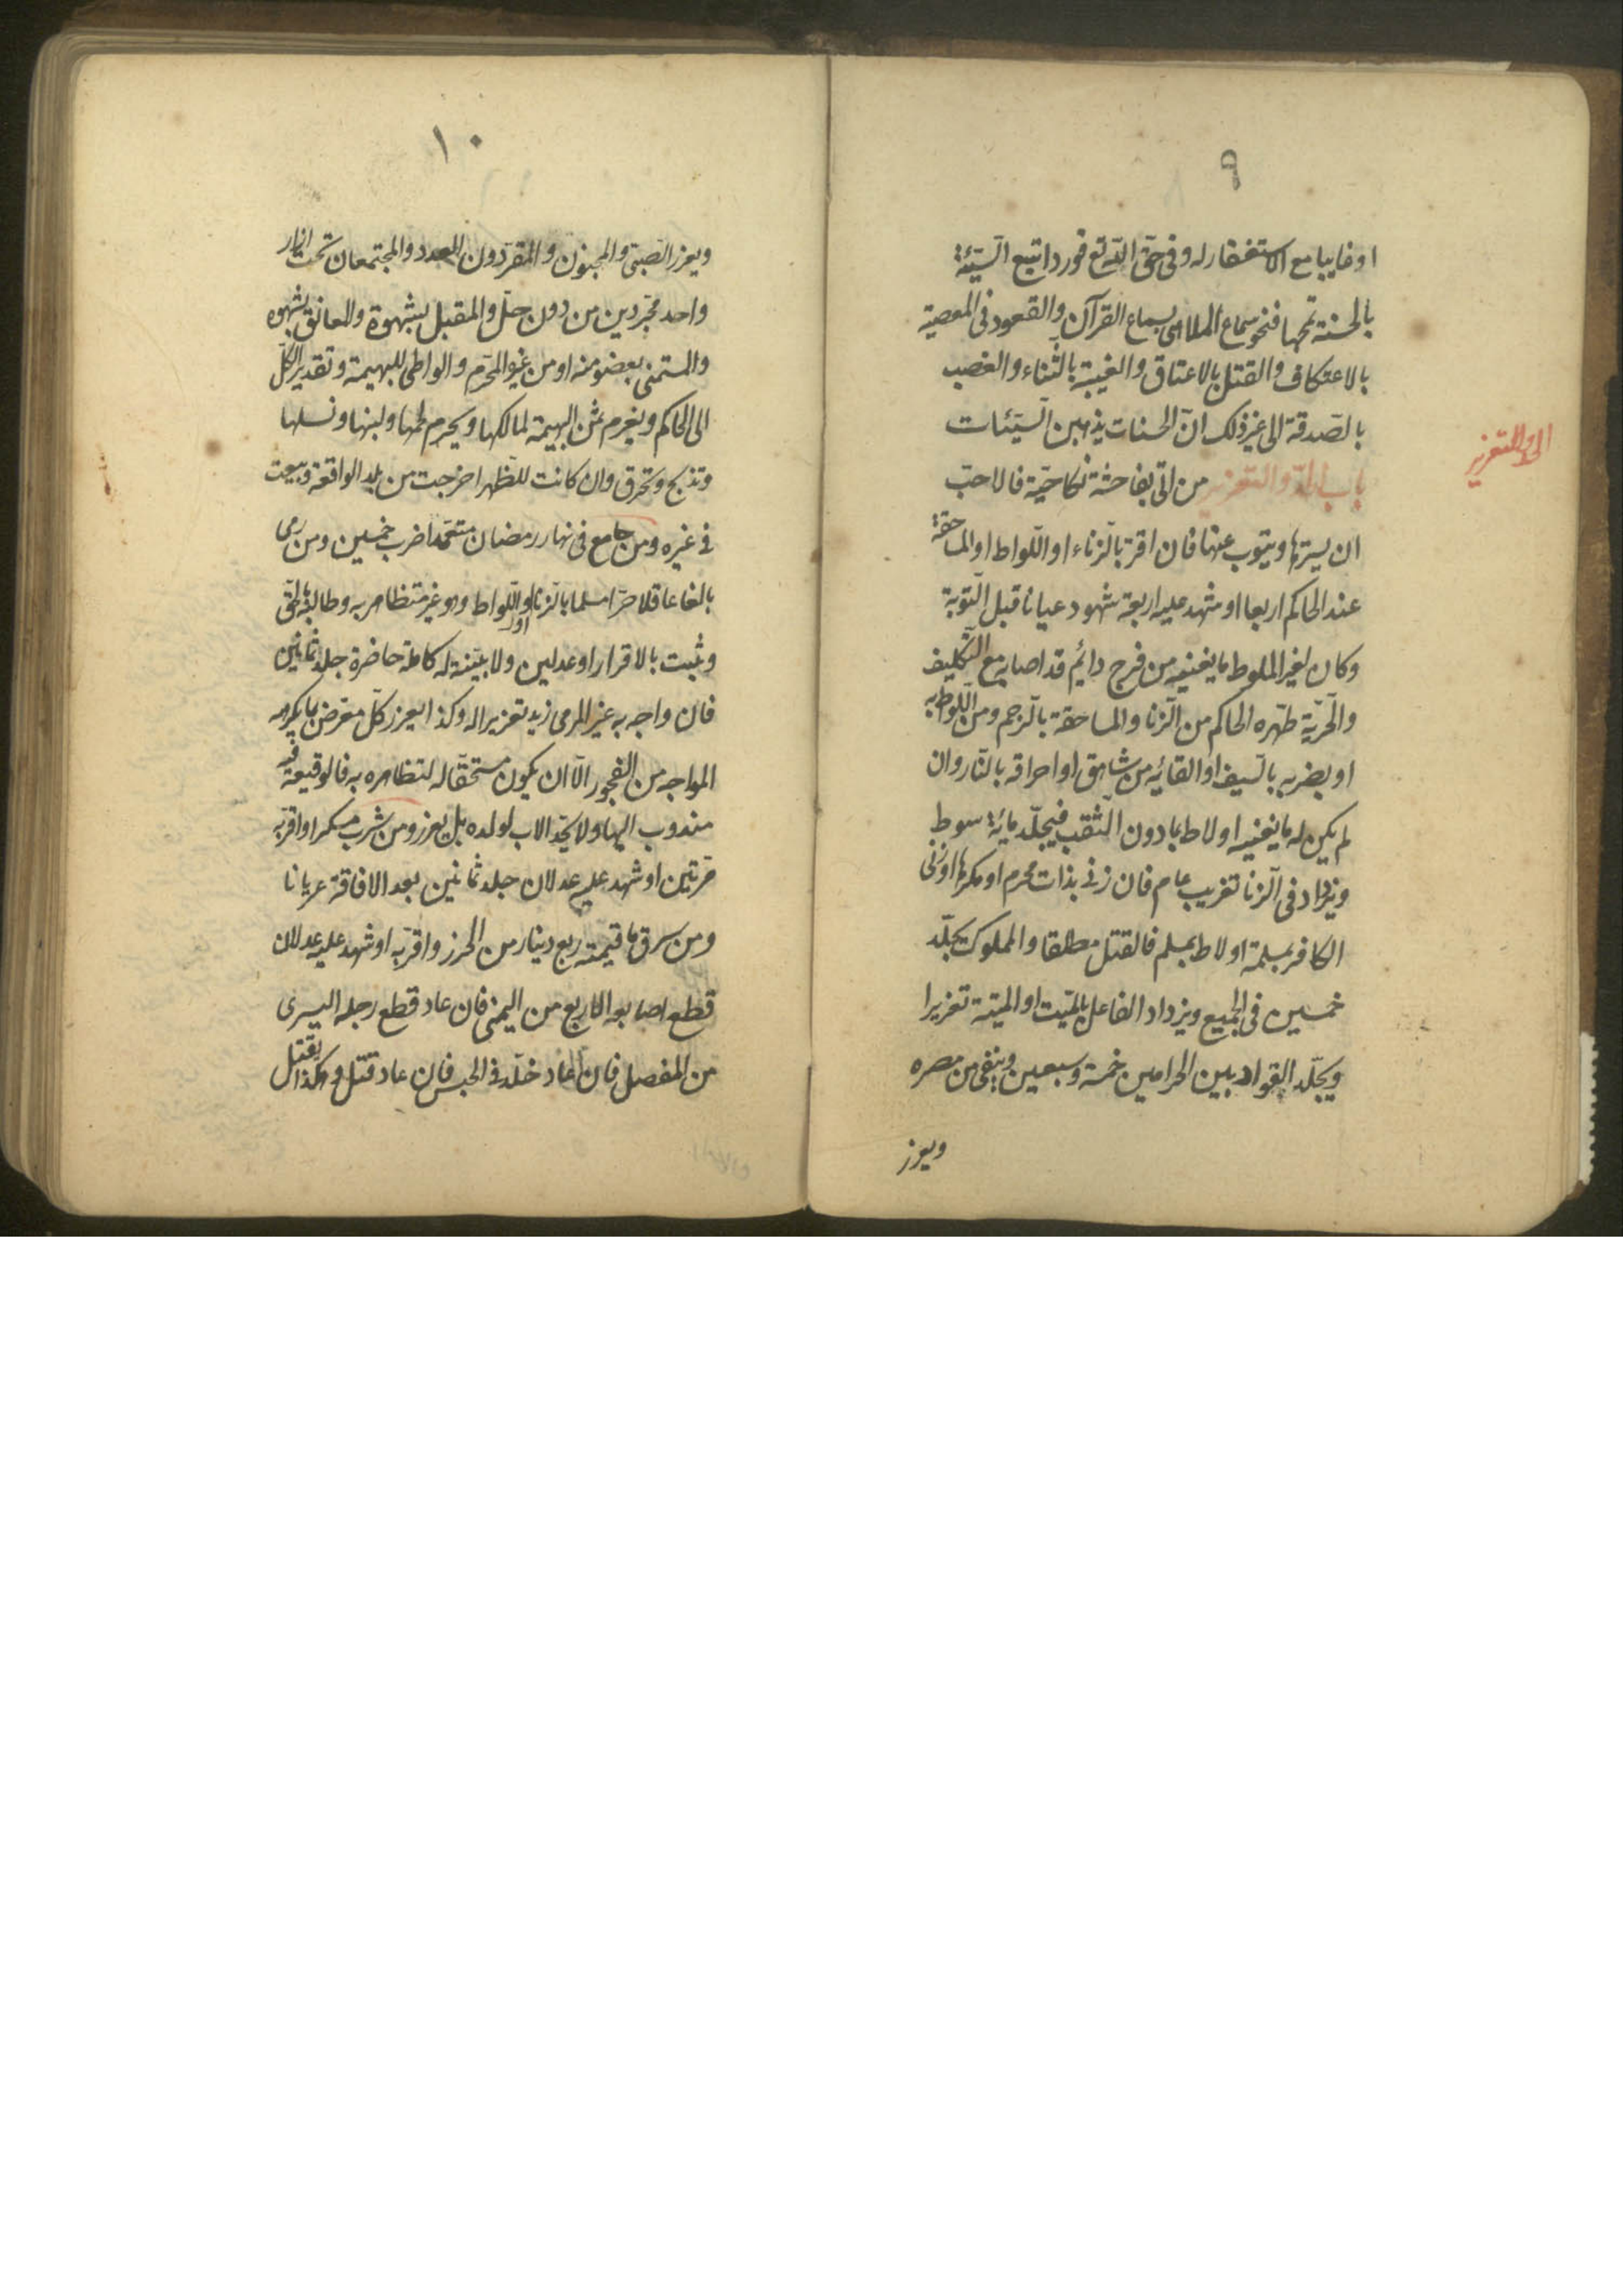 ٩
او غايبا مع الاستغفار له و فى حق اللّه تع فورد اتبع السّيّئة
بالحسنة تمحها فنحو سماع الملاهى بسماع القرآن و القعود فى المعصية
بالاعتكاف و القتل بالاعتاق و الغيبة بالثّناء و الغصب
بالصّدقة الى غير ذلك انّ الحسنات يذهبن السّيّئات
باب الحدّ و التعزير من اتى بفاحشة نكاحيّة فالاحبّ
الحد و التعزير
ان يسترها و يتوب عنها فان اقرّ بالزناء او اللّواط او المساحقة
عند الحاكم اربعا او شهد عليه اربعة شهود عيانا قبل التّوبة
و كان لغير الملوط ما يغنيه من فرج دائم قد اصابه مع التّكليف
و الحرّيّة طهّره الحاكم من الزنا و المساحقة بالرّجم و من اللّواط به
او بضربه بالسّيف او القائه من شاهق او احراقه بالنّار و ان
لم يكن له ما يغنيه او لاط بما دون الثّقب فيجلّد مائة سوط
و يزداد فى الزنا تغريب عام فان زنى بذات محرم او مكرها او زنى
الكافر بمسلمة او لاط بمسلم فالقتل مطلقا و المملوك يجلّد
خمسين فى الجميع و يزداد الفاعل بالميّت او الميتة تعزيرا
و يجلّد القواد بين الحرامين خمسة و سبعين و ينفى من مصره
و يعزر
١٠
و يعزر الصّبىّ و المجنون و المقرّ دون العدد و المجتمعان تحت ازار
واحد مجرّدين من دون حلّ و المقبل بشهوة و المعانق بشهوة
و المستمنى بعضو منه او من غير المحرّم و الواطى للبهيمة و تقدير الكلّ
الى الحاكم و يغرم ثمن البهيمة لمالكها و يحرم لحمها و لبنها و نسلها
و تذبح و تحرق و ان كانت للظّهر اخرجت من بلد الواقعة و بيعت
فى غيره و من جامع فى نهار رمضان متعمّدا ضرب خمسين و من رمى
بالغا عاقلا حرّا مسلما بالزنا او اللّواط و هو غير متظاهر به و طالبه بالحق
و ثبت بالاقرار او عدلين و لا بيّنة له كاملة حاضرة جلد ثمانين
فان واجه به غير المرمى زيد تعزيرا له و كذا يعزر كلّ معرض بما يكرهه
المواجه من الفجور الّا ان يكون مستحقّا له لتظاهره به فالوقيعة فيه
مندوب اليها و لا يحدّ الاب لولده بل يعزر و من شرب مسكرا و اقرّ به
مرّتين او شهد عليه عدلان جلد ثمانين بعد الافاقة عريانا
و من سرق ما قيمته ربع دينار من الحرز و اقرّ به او شهد عليه عدلان
قطع اصابعه الاربع من اليمنى فان عاد قطع رجله اليسرى
من المفصل فان عاد خلّد فى الحبس فان عاد قتل و هكذا يقتل